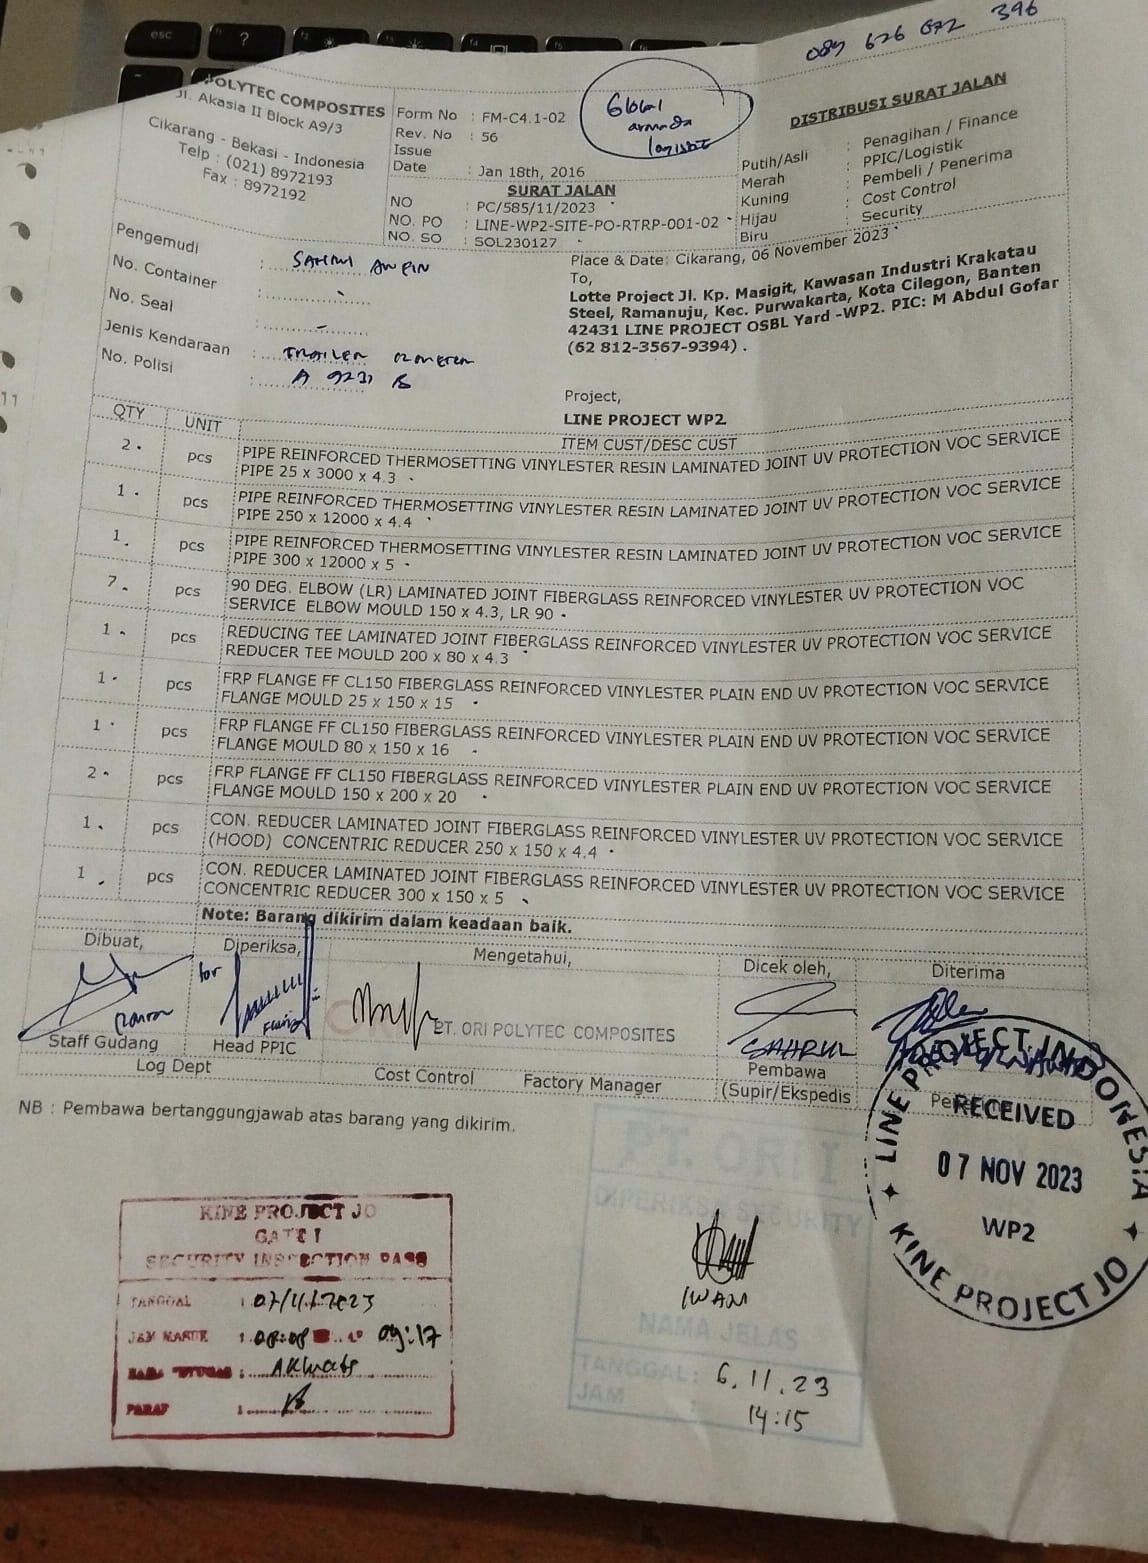 esc
?
089 626 072 396
POLYTEC COMPOSITES
Jl. Akasia II Block A9/3
Cikarang - Bekasi - Indonesia
Telp : (021) 8972193
Fax : 8972192
Form No : FM-C4.1-02
Rev. No : 56
Issue
Date : Jan 18th, 2016
SURAT JALAN
NO : PC/585/11/2023
NO. PO : LINE-WP2-SITE-PO-RTRP-001-02
NO. SO : SOL230127
Global
armada
logistic
DISTRIBUSI SURAT JALAN
Putih/Asli : Penagihan / Finance
Merah : PPIC/Logistik
Kuning : Pembeli / Penerima
Hijau : Cost Control
Biru : Security
Pengemudi :
No. Container : -
No. Seal : -
Jenis Kendaraan : TRAILER 12 METER
No. Polisi : A 9231 B
Place & Date: Cikarang, 06 November 2023
To,
Lotte Project Jl. Kp. Masigit, Kawasan Industri Krakatau
Steel, Ramanuju, Kec. Purwakarta, Kota Cilegon, Banten
42431 LINE PROJECT OSBL Yard -WP2. PIC: M Abdul Gofar
(62 812-3567-9394) .
Project,
LINE PROJECT WP2
QTY UNIT ITEM CUST/DESC CUST
2 pcs PIPE REINFORCED THERMOSETTING VINYLESTER RESIN LAMINATED JOINT UV PROTECTION VOC SERVICE
PIPE 25 x 3000 x 4.3
1 pcs PIPE REINFORCED THERMOSETTING VINYLESTER RESIN LAMINATED JOINT UV PROTECTION VOC SERVICE
PIPE 250 x 12000 x 4.4
1 pcs PIPE REINFORCED THERMOSETTING VINYLESTER RESIN LAMINATED JOINT UV PROTECTION VOC SERVICE
PIPE 300 x 12000 x 5
7 pcs 90 DEG. ELBOW (LR) LAMINATED JOINT FIBERGLASS REINFORCED VINYLESTER UV PROTECTION VOC
SERVICE ELBOW MOULD 150 x 4.3, LR 90
1 pcs REDUCING TEE LAMINATED JOINT FIBERGLASS REINFORCED VINYLESTER UV PROTECTION VOC SERVICE
REDUCER TEE MOULD 200 x 80 x 4.3
1 pcs FRP FLANGE FF CL150 FIBERGLASS REINFORCED VINYLESTER PLAIN END UV PROTECTION VOC SERVICE
FLANGE MOULD 25 x 150 x 15
1 pcs FRP FLANGE FF CL150 FIBERGLASS REINFORCED VINYLESTER PLAIN END UV PROTECTION VOC SERVICE
FLANGE MOULD 80 x 150 x 16
2 pcs FRP FLANGE FF CL150 FIBERGLASS REINFORCED VINYLESTER PLAIN END UV PROTECTION VOC SERVICE
FLANGE MOULD 150 x 200 x 20
1 pcs CON. REDUCER LAMINATED JOINT FIBERGLASS REINFORCED VINYLESTER UV PROTECTION VOC SERVICE
(HOOD) CONCENTRIC REDUCER 250 x 150 x 4.4
1 pcs CON. REDUCER LAMINATED JOINT FIBERGLASS REINFORCED VINYLESTER UV PROTECTION VOC SERVICE
CONCENTRIC REDUCER 300 x 150 x 5
Note: Barang dikirim dalam keadaan baik.
Dibuat, Diperiksa, Mengetahui, Dicek oleh, Diterima
for
PT. ORI POLYTEC COMPOSITES
SAHRUL
Staff Gudang Head PPIC Pembawa
Log Dept Cost Control Factory Manager (Supir/Ekspedis
NB : Pembawa bertanggungjawab atas barang yang dikirim.
LINE PROJECT INDONESIA
RECEIVED
07 NOV 2023
WP2
KINE PROJECT JO
KINE PROJECT JO
GATE 1
SECURITY INSPECTION PASS
TANGGAL : 07/11/2023
JAM MASUK : 08:08 09:17
NAMA PETUGAS :
PARAF :
PT. ORI
DIPERIKSA SECURITY
IWAN
NAMA JELAS
TANGGAL : 6.11.23
JAM : 14:15